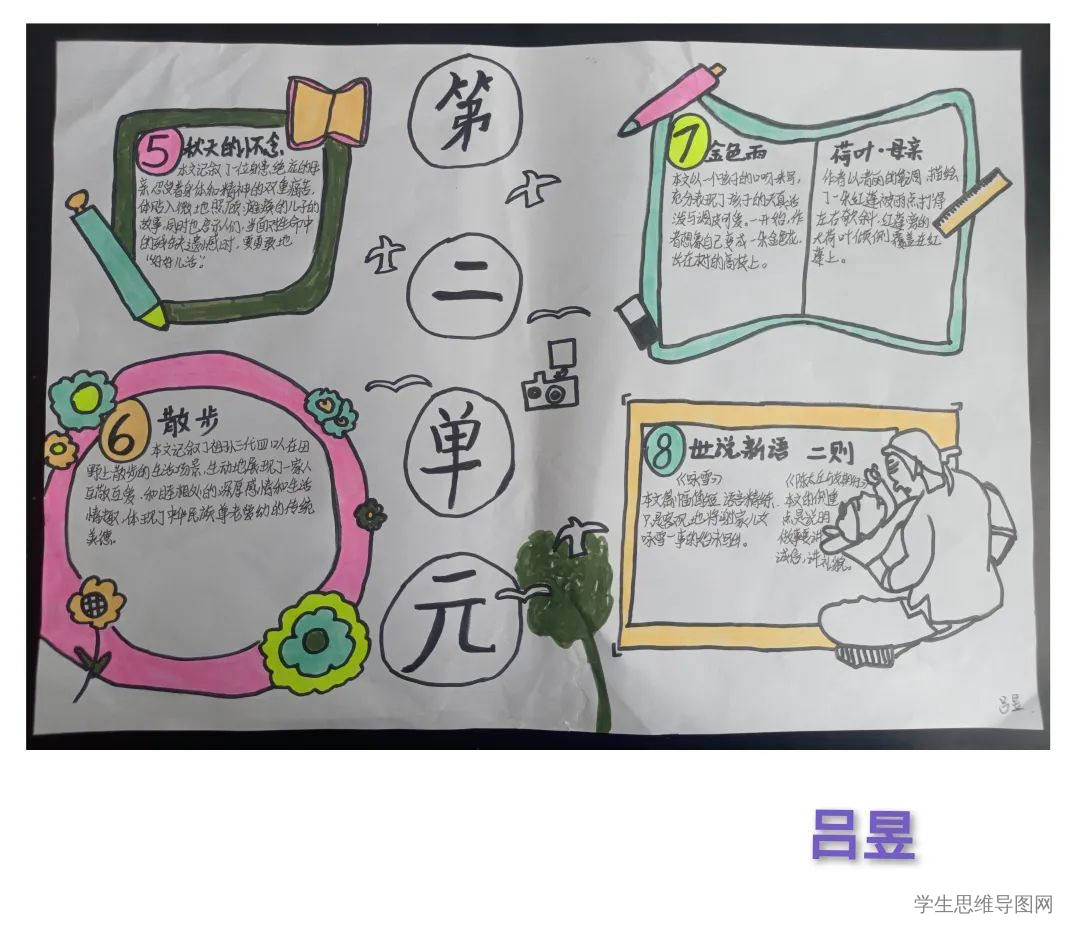 第
二
单
元
5 秋天的怀念
本文记叙了一位身患绝症的母
亲,忍受着身体和精神的双重痛苦,
体贴入微地照顾瘫痪的儿子的
故事,同时也启示人们,当面对生命中
的残缺与遗憾时,要勇敢地
“好好儿活”。
6 散步
本文记叙了祖孙三代四口人在田
野上散步的生活场景,生动地展现了一家人
互敬互爱、和睦相处的深厚感情和生活
情趣,体现了中华民族尊老爱幼的传统
美德。
7 金色雨
本文以一个孩子的口吻来写,
充分表现了孩子的天真活
泼与调皮可爱。一开始,作
者想象自己变成一朵金色花,
长在树的高枝上。
荷叶·母亲
作者以清丽的笔调,描绘
了一朵红莲被雨点打得
左右欹斜,红莲旁的
大荷叶倾侧覆盖在红
莲上。
8 世说新语 二则
《咏雪》
本文篇幅简短,语言精练,
只是客观地将谢家儿女
咏雪一事的始末写出。
本文的侧重
点是说明
做事要讲
诚信,讲礼貌。
吕昱
吕昱
学生思维导图网